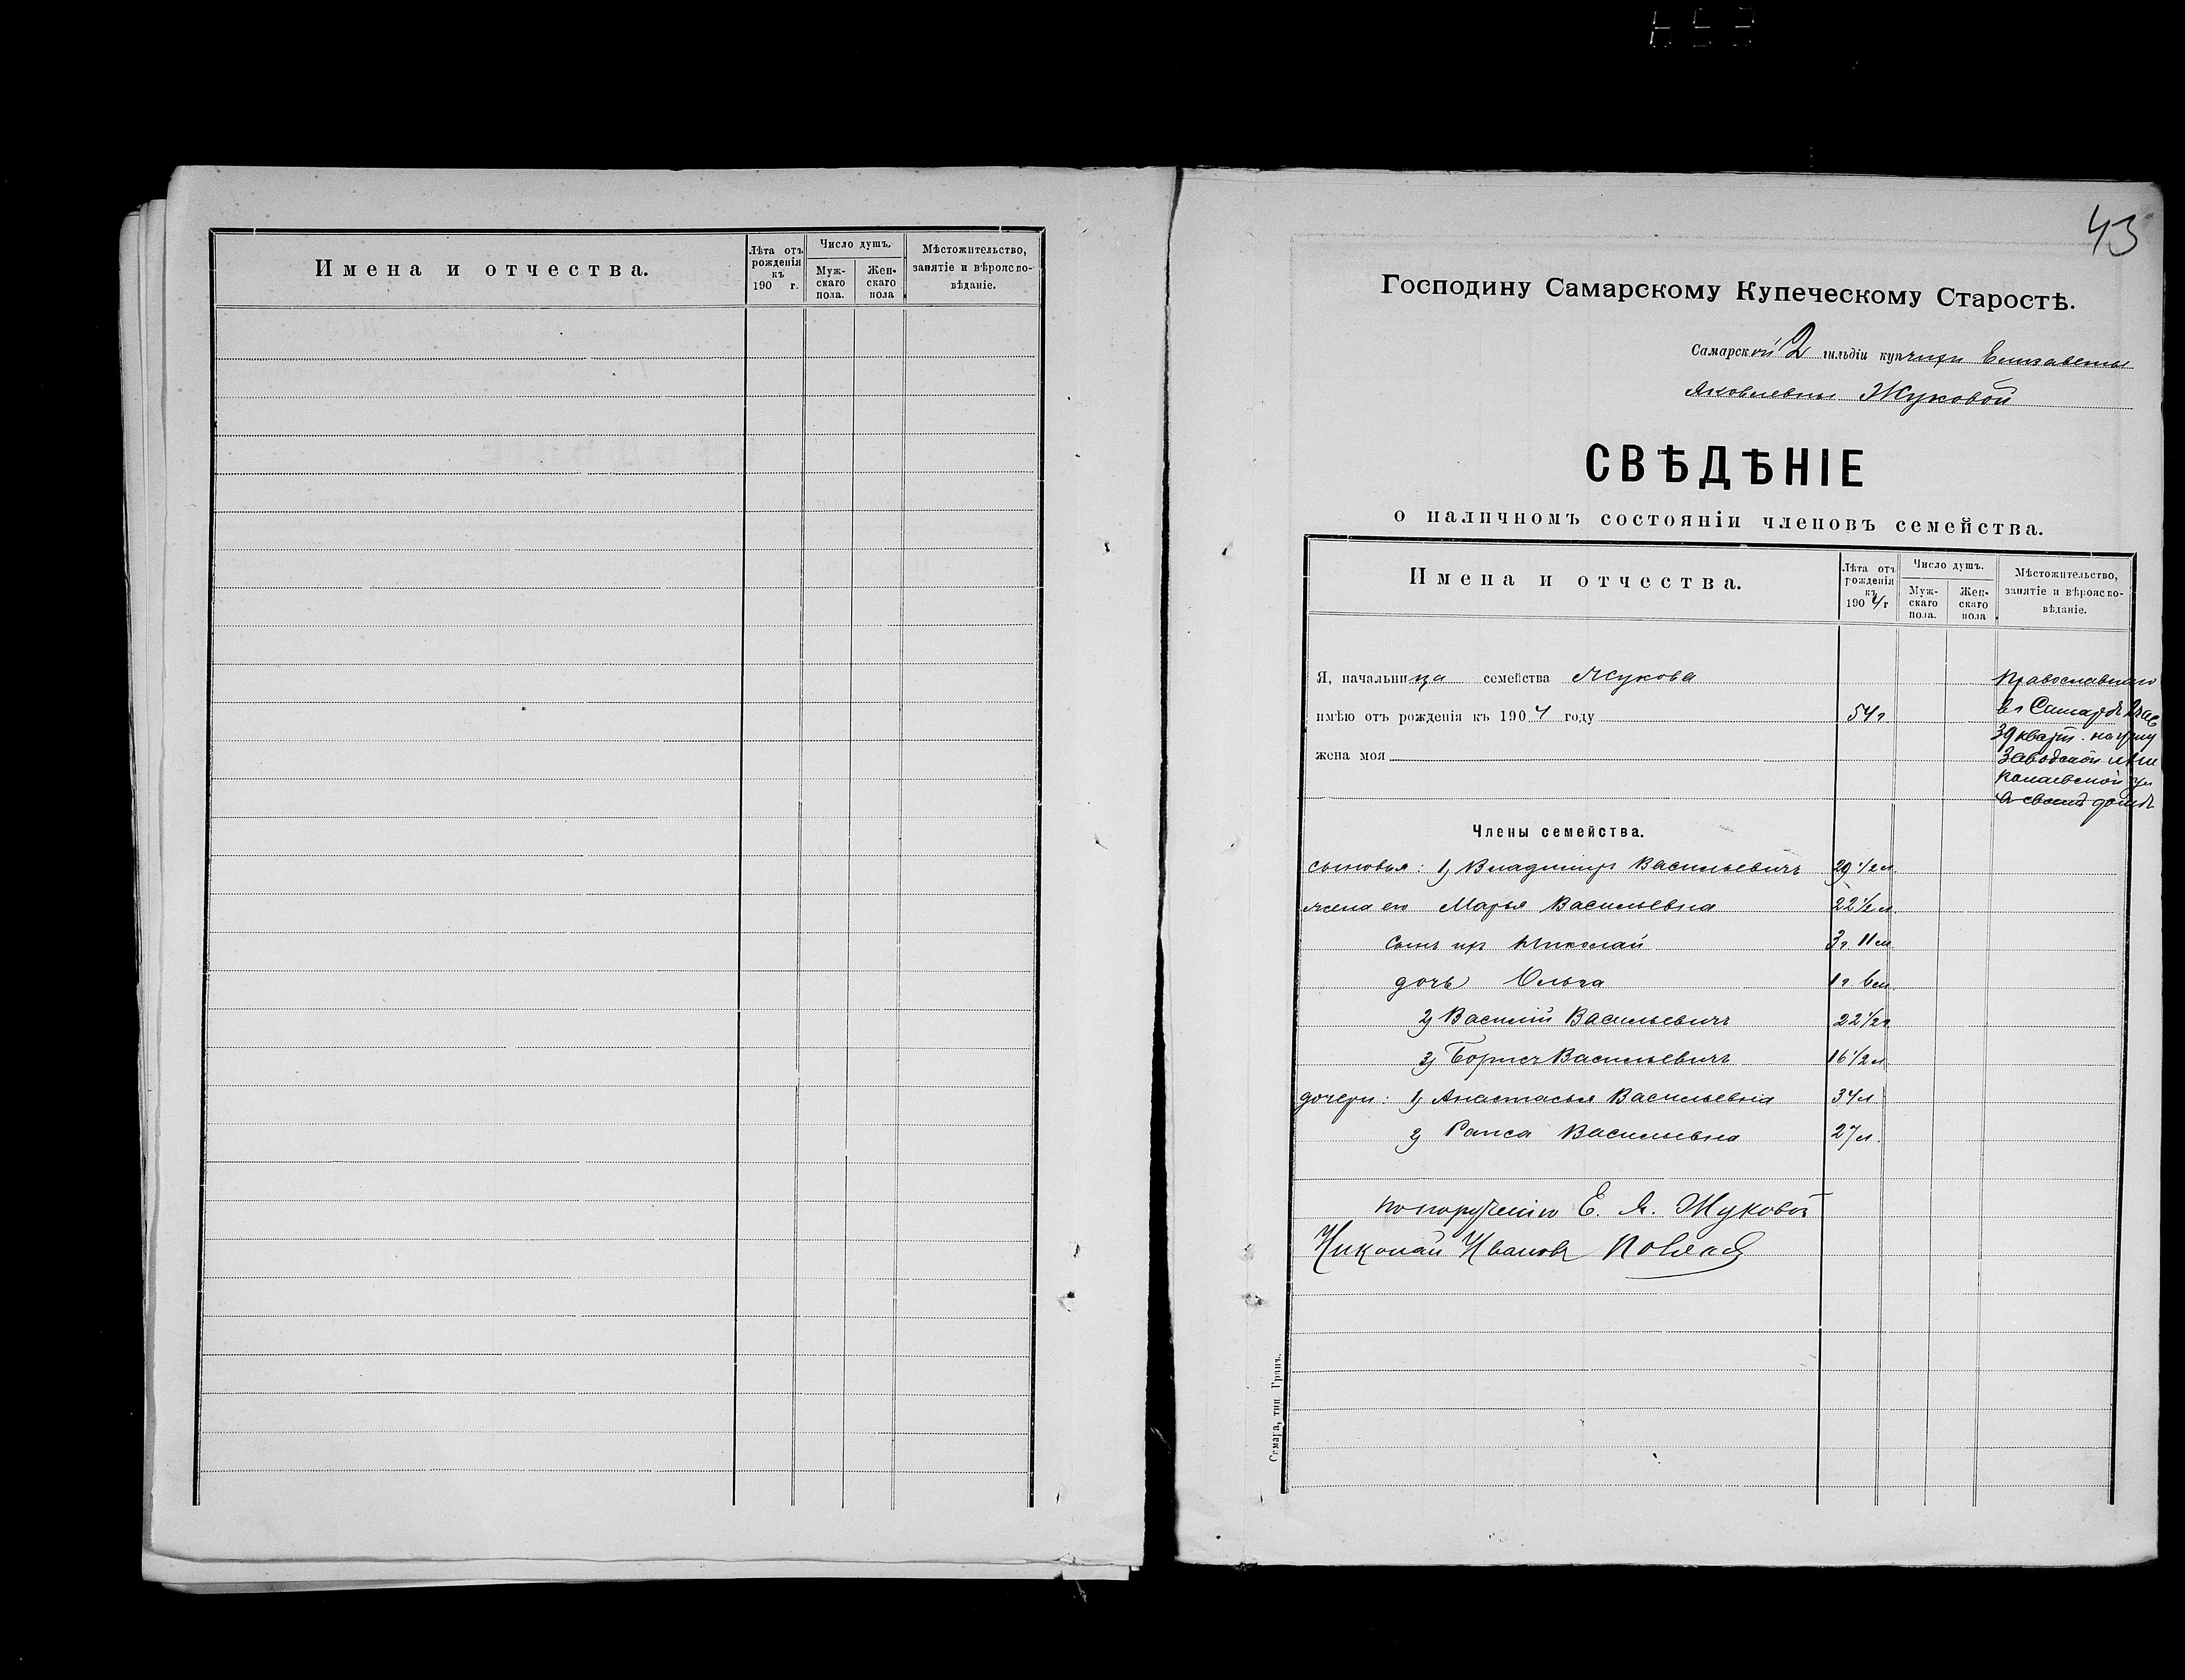 Имена и отчества.
Лѣта отъ рожденія къ 190 г.
Число душъ.
Муж-скаго пола.
Жен-скаго пола
Мѣстожительство, занятіе и вѣроиспо-вѣданіе.
43
Господину Самарскому Купеческому Старостѣ.
Самарской 2 гильдіи купчихи Елизаветы
Яковлевны Жуковой
СВѢДѢНІЕ
о наличномъ состояніи членовъ семейства.
Имена и отчества.
Лѣта отъ рожденія къ 1904 г
Число душъ.
Муж-скаго пола.
Жен-скаго пола
Мѣстожительство, занятіе и вѣроиспо-вѣданіе.
Я, начальница семейства Жукова
Православнаго
имѣю отъ рожденія къ 1904 году 54 г
въ Самарѣ 2 час
3й кварт. на углу
жена моя
Заводской и Ни
колаевской ул
въ своемъ домѣ
Члены семейства.
сыновья: 1) Владимиръ Васильевичъ 29 1/2 л.
жена его Марья Васильевна 22 1/2 л.
сынъ ихъ Николай 3 г. 11 м.
дочь Ольга 1 г. 6 м
2) Василій Васильевичъ 22 1/2 г
3) Борисъ Васильевичъ 16 1/2 л
дочери: 1) Анастасья Васильевна 34 л.
2) Раиса Васильевна 27 л.
по порученію Е. Я. Жуковой
Николай Ивановъ
Самара, тип. Гранъ.